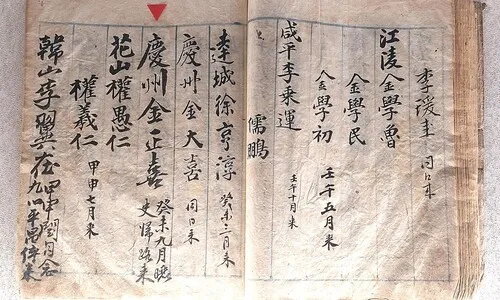 李瑗圭 同日來
江陵金學魯
金學民
金學初 壬午五月來
咸平李乘運
儒鵬 壬午十月來
達城徐亨淳 癸未二月來
慶州金大喜 同日來
慶州金正喜 癸未九月晦 史歸路來
花山權愚仁
權羲仁 甲申七月來
韓山李翼在